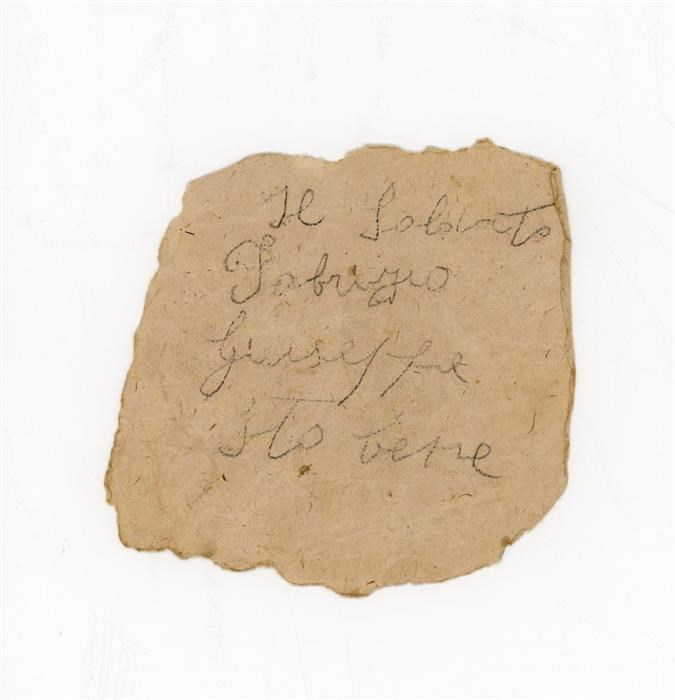 Il Soldato
Fabrizio
Giuseppe
sto bene